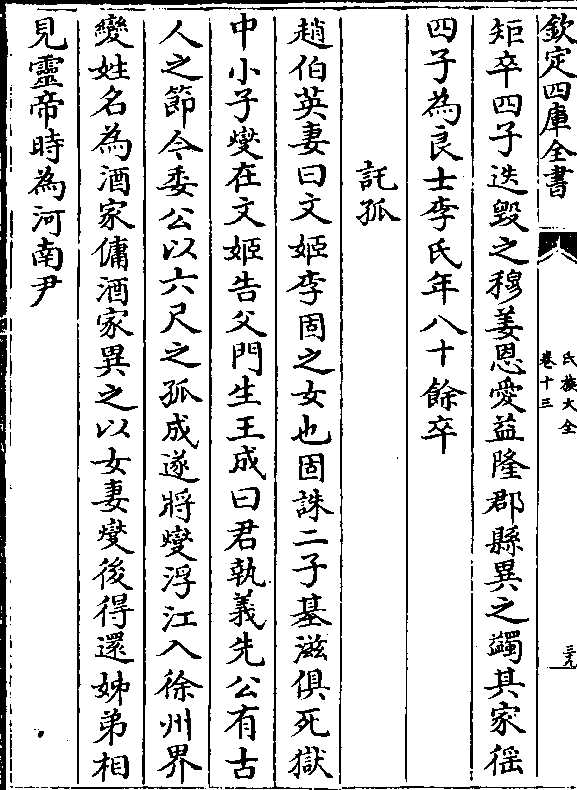 欽定四庫全書
氏族大全
卷十三
三九
矩卒四子迭毀之穆姜恩愛益隆郡縣異之蠲其家徭
四子為良士李氏年八十餘卒
託孤
趙伯英妻曰文姬李固之女也固誅二子基滋俱死獄
中小子燮在文姬告父門生王成曰君執義先公有古
人之節今委公以六尺之孤成遂將燮浮江入徐州界
變姓名為酒家傭酒家異之以女妻燮後得還姊弟相
見靈帝時為河南尹